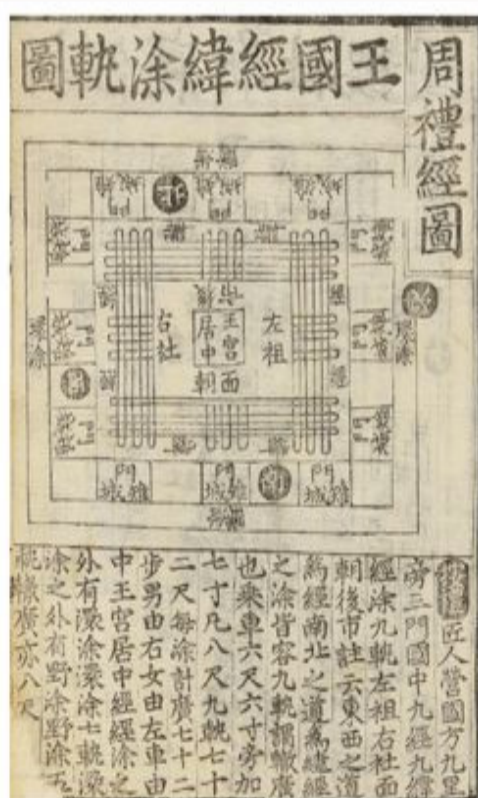 周禮經圖
王國經緯涂軌圖
王宮
居中
左祖
右社
面朝
環涂
環涂
門
雉城
門
雉城
門
雉城
匠人營國方九里
旁三門國中九經九緯
經涂九軌左祖右社面
朝後市註云東西之道
為經南北之道為緯經
之涂皆容九軌謂轍廣
也乘車六尺六寸旁加
七寸凡八尺九軌七十
二尺每涂計廣七十二
步男由右女由左車由
中王宮居中經經涂之
外有環涂環涂七軌環
涂之外有野涂野涂五
軌轍廣亦八尺